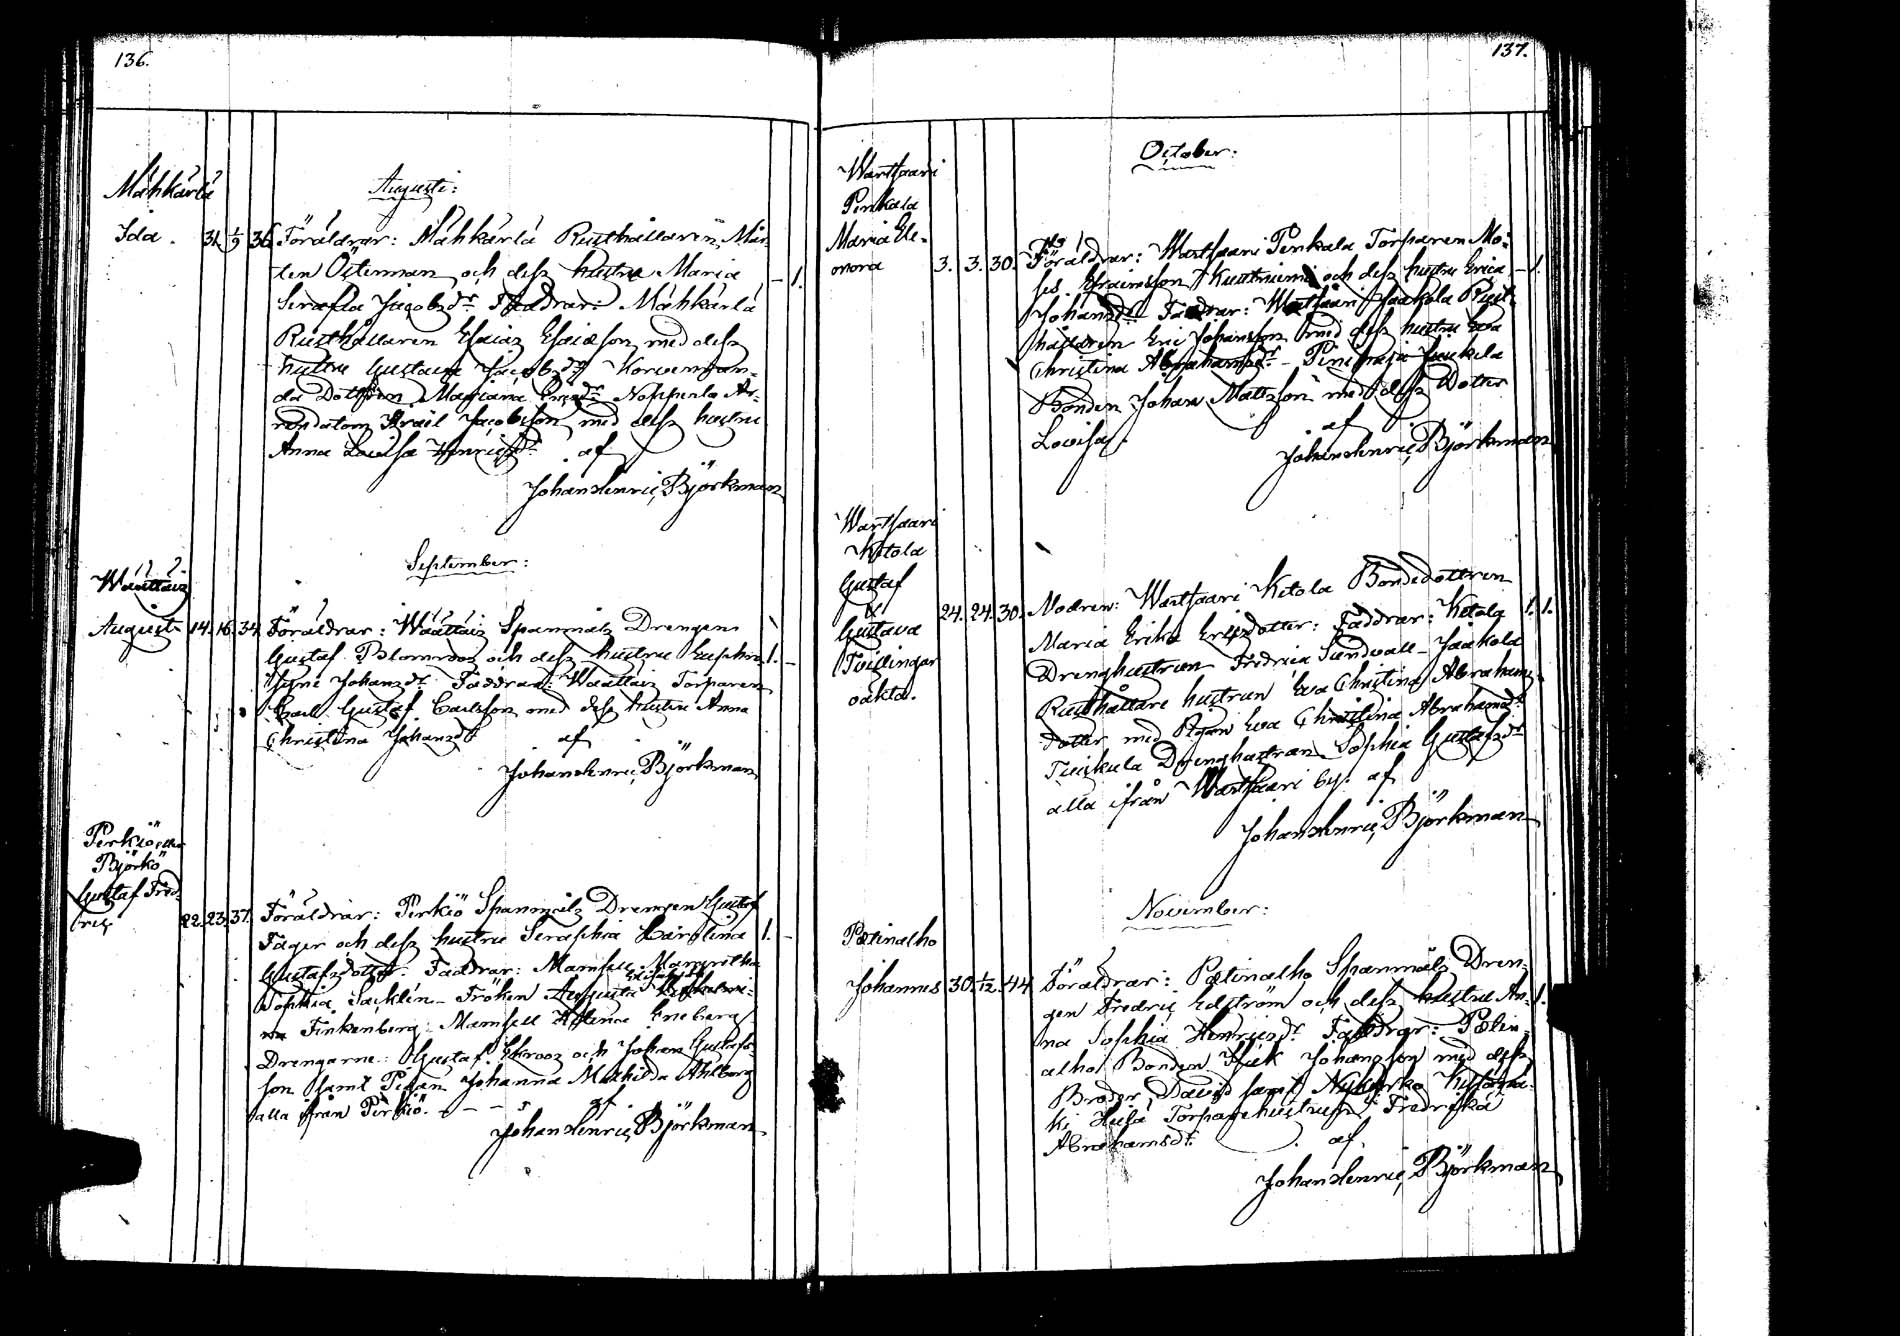 136.
Augusti:
Måhkärlä
Ida. 31. 1/9 36 Föräldrar: Måhkärlä Rusthållaren Mår-
ten Österman och dess hustru Maria — 1.
Serafia Jacobsdr. Faddrar: Måhkärlä
Rusthållaren Esaias Esaiasson med dess
hustru Gustava Jacobsdr
da Dottren Mariana Nopperla Ar-
rendatorn Israil Jacobsson med dess hustru
Anna Lovisa Henricsdr. af
Johan Henric Björkman
September:
Wäättäis
August 14. 16. 34. Föräldrar: Wäättäis Spanmåls Drengen
Gustaf Blomroos och dess hustru Euphro- 1. —
syne Johansdr. Faddrar: Wäättäis Torparen
Carl Gustaf Carlsson med dess hustru Anna
Christina Johansdr af
Johan Henric Björkman
Perkiö eller
Björkö
Gustaf Fred-
ric 22. 23. 37. Föräldrar: Perkiö Spanmåls Drengen Gustaf
Fager och dess hustru Seraphia Carolina 1. —
Gustafsdotter. Faddrar: Mamsell Margretha
Sophia Sacklén — Fröken Augusta
Finkenberg — Mamsell Helena Eneberg
Drengarne: Gustaf Ekroos och Johan Gustafs-
son samt Pigan Johanna Mathilda Ahlberg
alla ifrån Perkiö. — — af
Johan Henric Björkman
137.
October:
Wartsaari
Penkala
Maria Ele-
onora 3. 3. 30. Föräldrar: Wartsaari Penkala Torparen Mo-
ses Efraimsson och dess hustru Erica — 1.
Johansdr. Faddrar: Wartsaari Jaakola Rust-
hållaren Eric Johansson med dess hustru Eva
Christina Abrahamsdr —
Bonden Johan Mattsson med dess Dotter
Lovisa. af
Johan Henric Björkman
Wartsaari
Ketola
Gustaf
&
Gustava
Tvillingar
oäkta. 24. 24. 30. Modren: Wartsaari Ketola Bondedottren
Maria Erika Ericsdotter: Faddrar: Ketola 1. 1.
Drenghustrun Fredrica Sundvall — Jaakola
Rusthållare hustrun Eva Christina Abrahams-
dotter med Pigan Eva Christina Abrahamsdr
Tuiskula Drenghustrun Sophia Gustafsdr
alla ifrån Wartsaari by. af
Johan Henric Björkman
November:
Pälinalho
Johannes 30. 1/12. 44. Föräldrar: Pälinalho Spanmåls Dren-
gen Fredric Edström och dess hustru An- 1.
na Sophia Henricsdr. Faddrar: Pälin-
alho Bonden Isak Johansson med dess
Broder David samt Nykyrko
ki Heilä Torparehustrun Fredrika
Abrahamsdr. af
Johan Henric Björkman